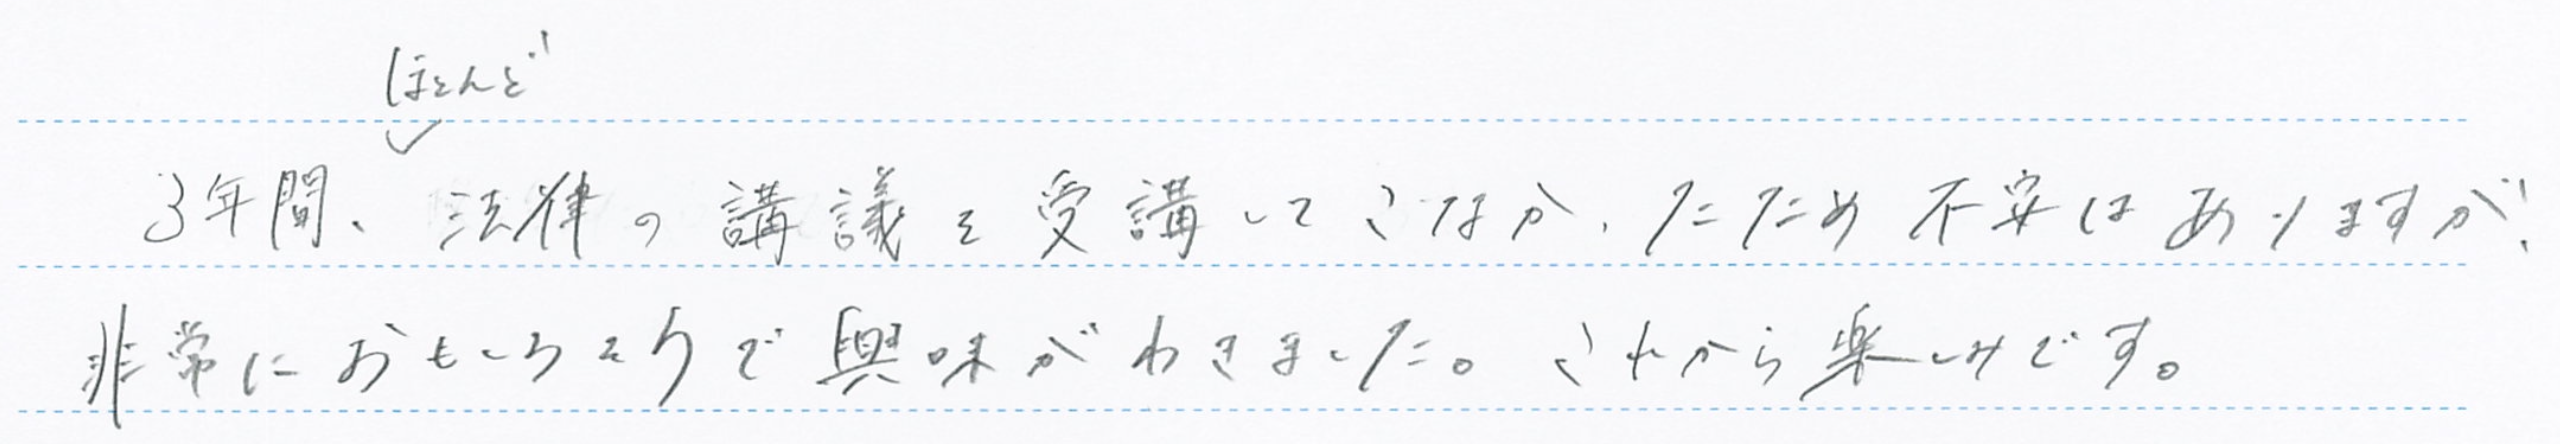 ほとんど
3年間、法律の講議を受講してこなかったため不安はありますが、
非常におもしろそうで興味がわきました。これから楽しみです。